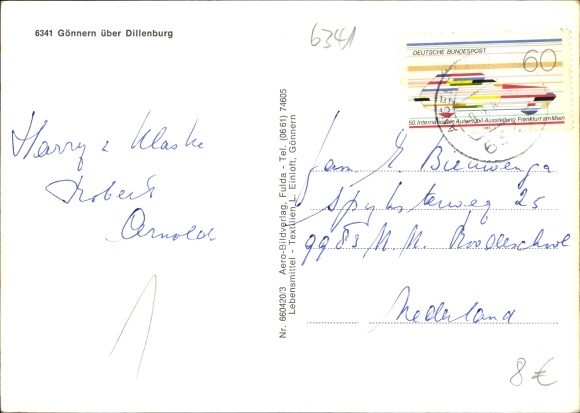 6341 Gönnern über Dillenburg
6341
DEUTSCHE BUNDESPOST
60
50. Internationale Automobil-Ausstellung Frankfurt am Main
Harry & Klaske
Robert
Arnold
Nr. 660420/3 Aero-Bildverlag, Fulda - Tel. (06 61) 74605
Lebensmittel - Textilien L. Einloft, Gönnern
Fam. E. Bieuwenga
25
9983 Roodeschool
Nederland
8 €